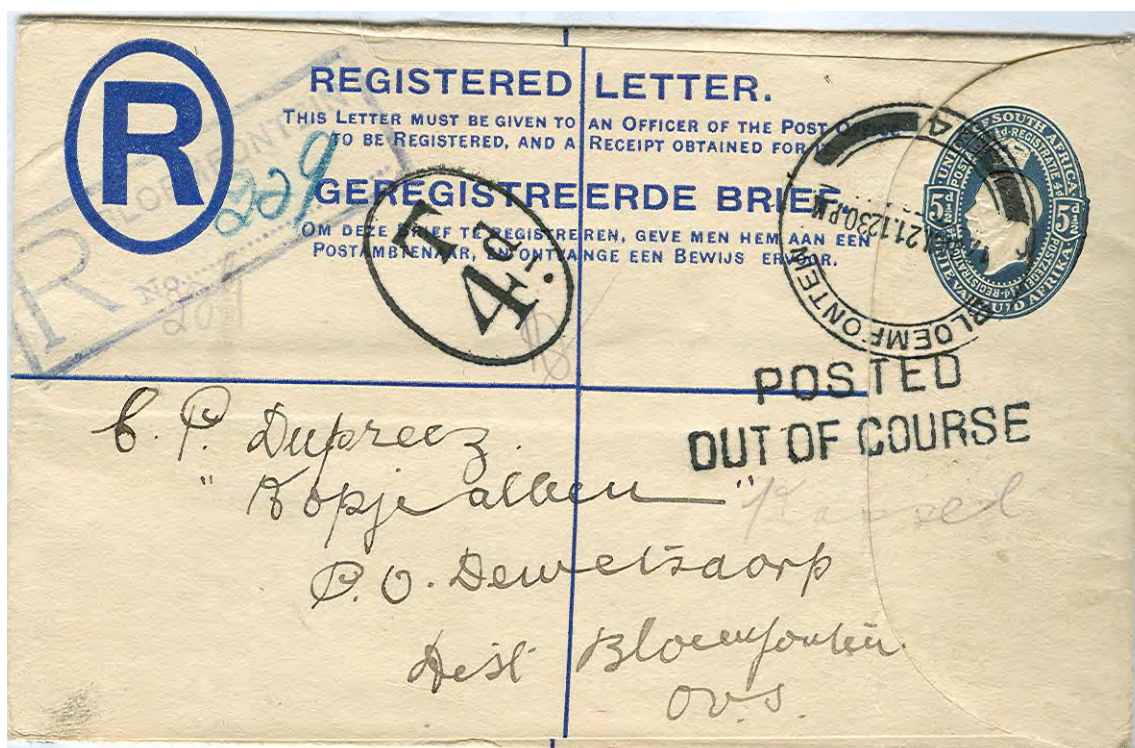 R
REGISTERED LETTER.
THIS LETTER MUST BE GIVEN TO AN OFFICER OF THE POST
TO BE REGISTERED, AND A RECEIPT OBTAINED FOR
GEREGISTREERDE BRIEF
OM DEZE BRIEF TE REGISTREREN, GEVE MEN HEM AAN EEN
POSTAMBTENAAR, EN ONTVANGE EEN BEWIJS ERVOOR.
R
BLOEMFONTEIN
No.
229
T
4d.
SOUTH AFRICA
5
5
ZUID AFRIKA
BLOEMFONTEIN
4
1230.P.M
POSTED
OUT OF COURSE
C. P. Dupreez.
"Kopjealleen"
P.O. Dewetsdorp
Dist Bloemfontein
O.V.S.